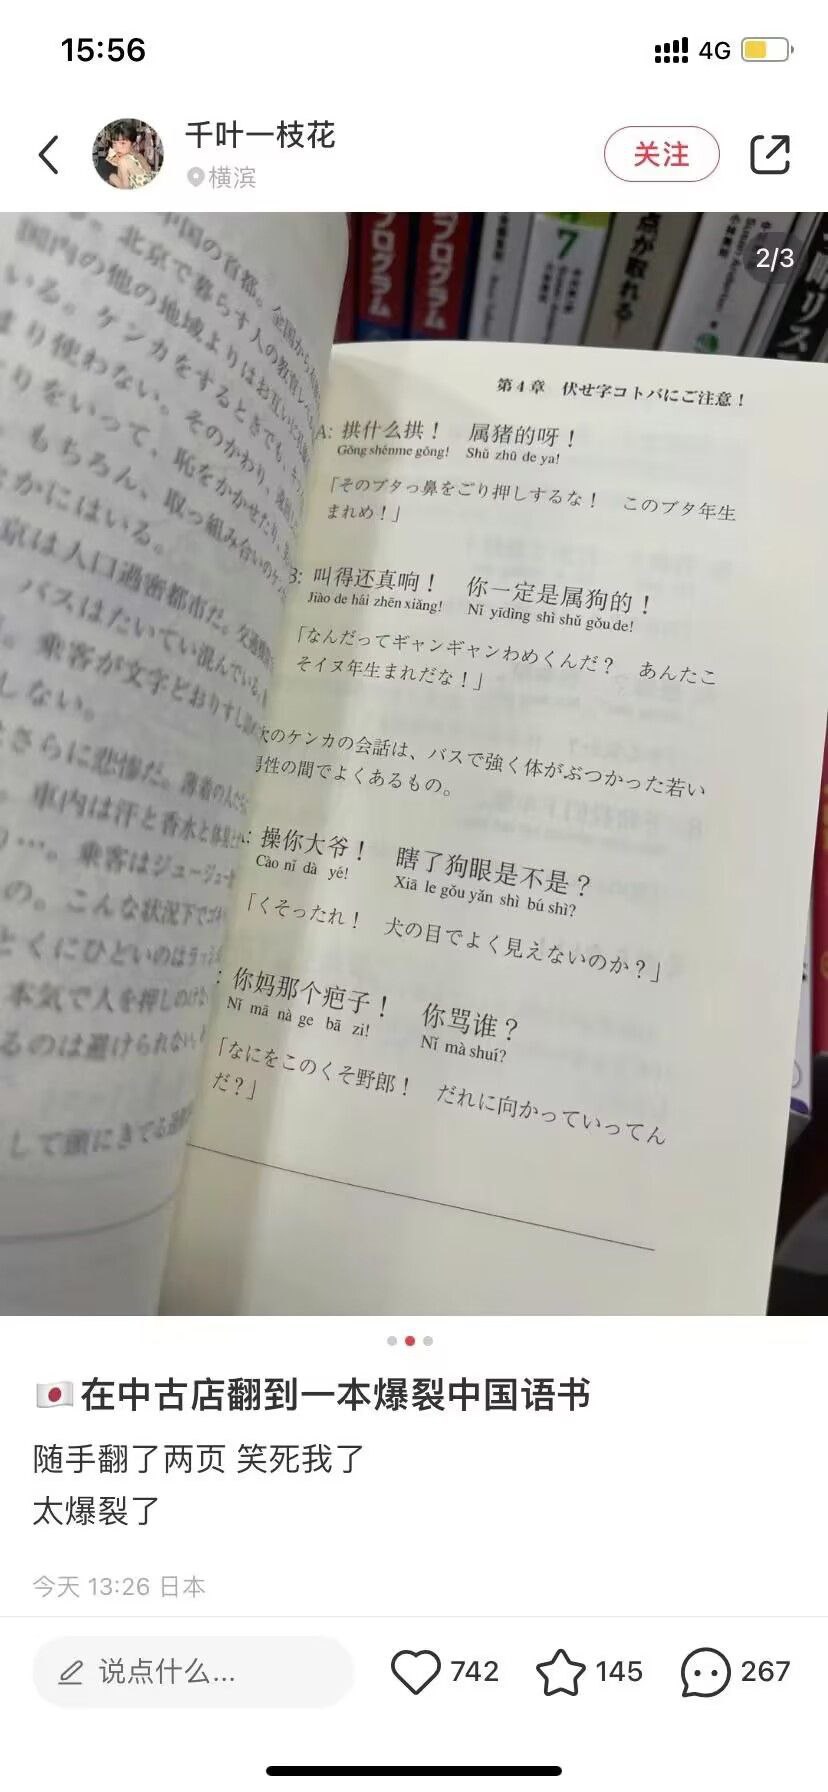 15:56
4G
千叶一枝花
关注
横滨
2/3
プログラム
プログラム
7
点が取れる!
中国の首都。全国から
北京で暮らす人の教育レベ
国内の他の地域よりはお互いに
いる。ケンカをするときでも、
まり使わない。そのかわり、
りをいって、恥をかかせたり、
もちろん、取っ組み合いのケン
かにはいる。
京は人口過密都市だ。交通
バスはたいてい混んでいる。
乗客が文字どおりすし
しない。
さらに悲惨だ。薄着の人たち
車内は汗と香水と体臭と
…。乗客はジュージュー
の。こんな状況下で
とくにひどいのはラッシュ
本気で人を押しのけ
るのは避けられない。
して頭にきてる
第4章 伏せ字コトバにご注意!
A: 拱什么拱! 属猪的呀!
Gǒng shénme gǒng! Shǔ zhū de ya!
「そのブタっ鼻をごり押しするな! このブタ年生
まれめ!」
B: 叫得还真响! 你一定是属狗的!
Jiào de hái zhēn xiǎng! Nǐ yīdìng shì shǔ gǒu de!
「なんだってギャンギャンわめくんだ? あんたこ
そイヌ年生まれだな!」
次のケンカの会話は、バスで強く体がぶつかった若い
男性の間でよくあるもの。
: 操你大爷! 瞎了狗眼是不是?
Cào nǐ dà yé! Xiā le gǒu yǎn shì bú shì?
「くそったれ! 犬の目でよく見えないのか?」
: 你妈那个疤子! 你骂谁?
Nǐ mā nà ge bā zi! Nǐ mà shuí?
「なにをこのくそ野郎! だれに向かっていってん
だ?」
🇯🇵在中古店翻到一本爆裂中国语书
随手翻了两页 笑死我了
太爆裂了
今天 13:26 日本
说点什么...
742
145
267